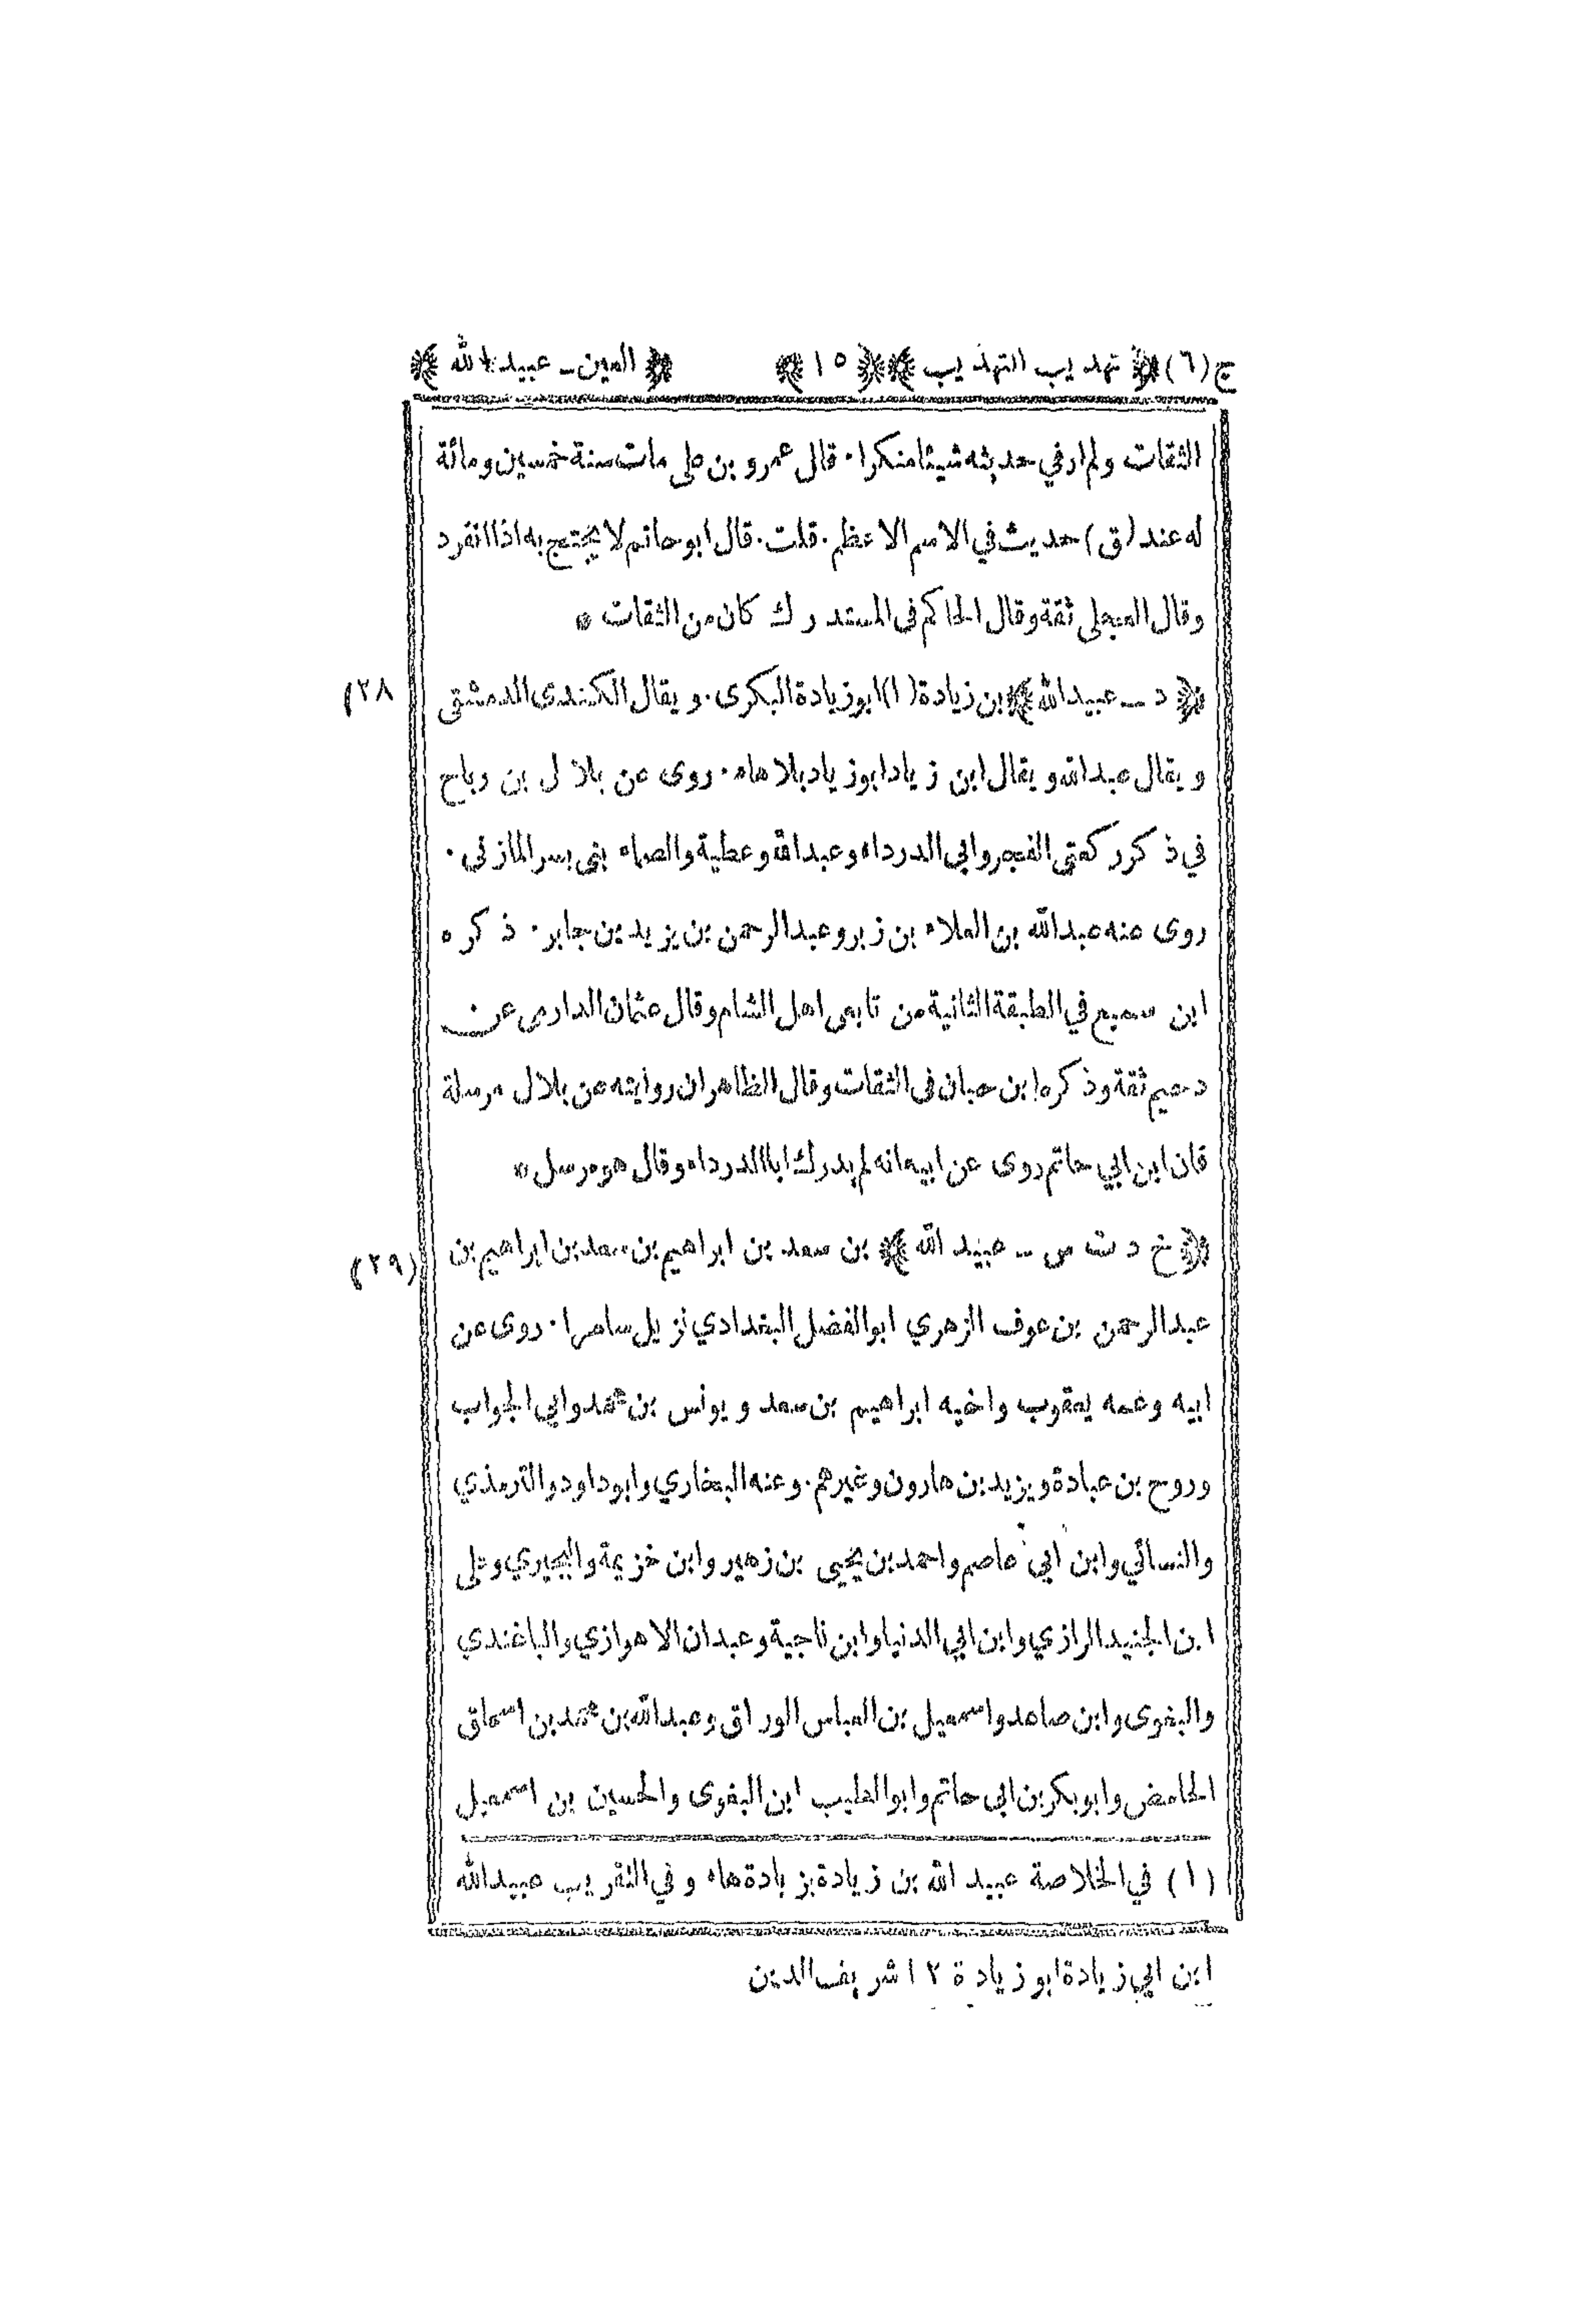 ج (٦) ﴿ تهذيب التهذيب ﴾﴿ ١٥ ﴾ ﴿ العين - عبيد الله ﴾
الثقات ولم ار في حديثه شيئا منكرا · قال عمرو بن علي مات سنة خمسين ومائة
له عند (ق) حديث في الاسم الاعظم · قلت · قال ابو حاتم لا يحتج به اذا انفرد
وقال العجلي ثقة وقال الحاكم في المستدرك كان من الثقات *
﴿ د - عبيد الله ﴾ بن زيادة (١) ابو زيادة البكرى · ويقال الكندى الدمشقى
(٢٨
ويقال عبد الله ويقال ابن زياد ابو زياد بلا هاء · روى عن بلال بن رباح
في ذكر ركعتى الفجر وابي الدرداء وعبد الله وعطية والصماء بنى بسر المازني ·
روى عنه عبد الله بن العلاء بن زبر وعبد الرحمن بن يزيد بن جابر · ذكره
ابن سميع في الطبقة الثانية من تابعى اهل الشام وقال عثمان الدارمى عن
دحيم ثقة وذكره ابن حبان فى الثقات وقال الظاهر ان روايته عن بلال مرسلة
فان ابن ابي حاتم روى عن ابيه انه لم يدرك ابا الدرداء وقال هو مرسل *
﴿ خ د ت س - عبيد الله ﴾ بن سعد بن ابراهيم بن سعد بن ابراهيم بن
(٢٩)
عبد الرحمن بن عوف الزهري ابو الفضل البغدادي نزيل سامرا · روى عن
ابيه وعمه يعقوب واخيه ابراهيم بن سعد ويونس بن محمد وابي الجواب
وروح بن عبادة ويزيد بن هارون وغيرهم · وعنه البخاري وابو داود والترمذي
والنسائي وابن ابي عاصم واحمد بن يحيى بن زهير وابن خزيمة والبجيري وعلى
ابن الجنيد الرازي وابن ابي الدنيا وابن ناجية وعبدان الاهوازي والباغندي
والبغوى وابن صاعد واسمعيل بن العباس الوراق وعبد الله بن محمد بن اسحاق
الحامض وابو بكر بن ابى حاتم وابو الطيب ابن البغوى والحسين بن اسمعيل
(١) في الخلاصة عبيد الله بن زيادة بزيادة هاء وفي التقريب عبيد الله
ابن ابي زيادة ابو زيادة ١٢ شريف الدين